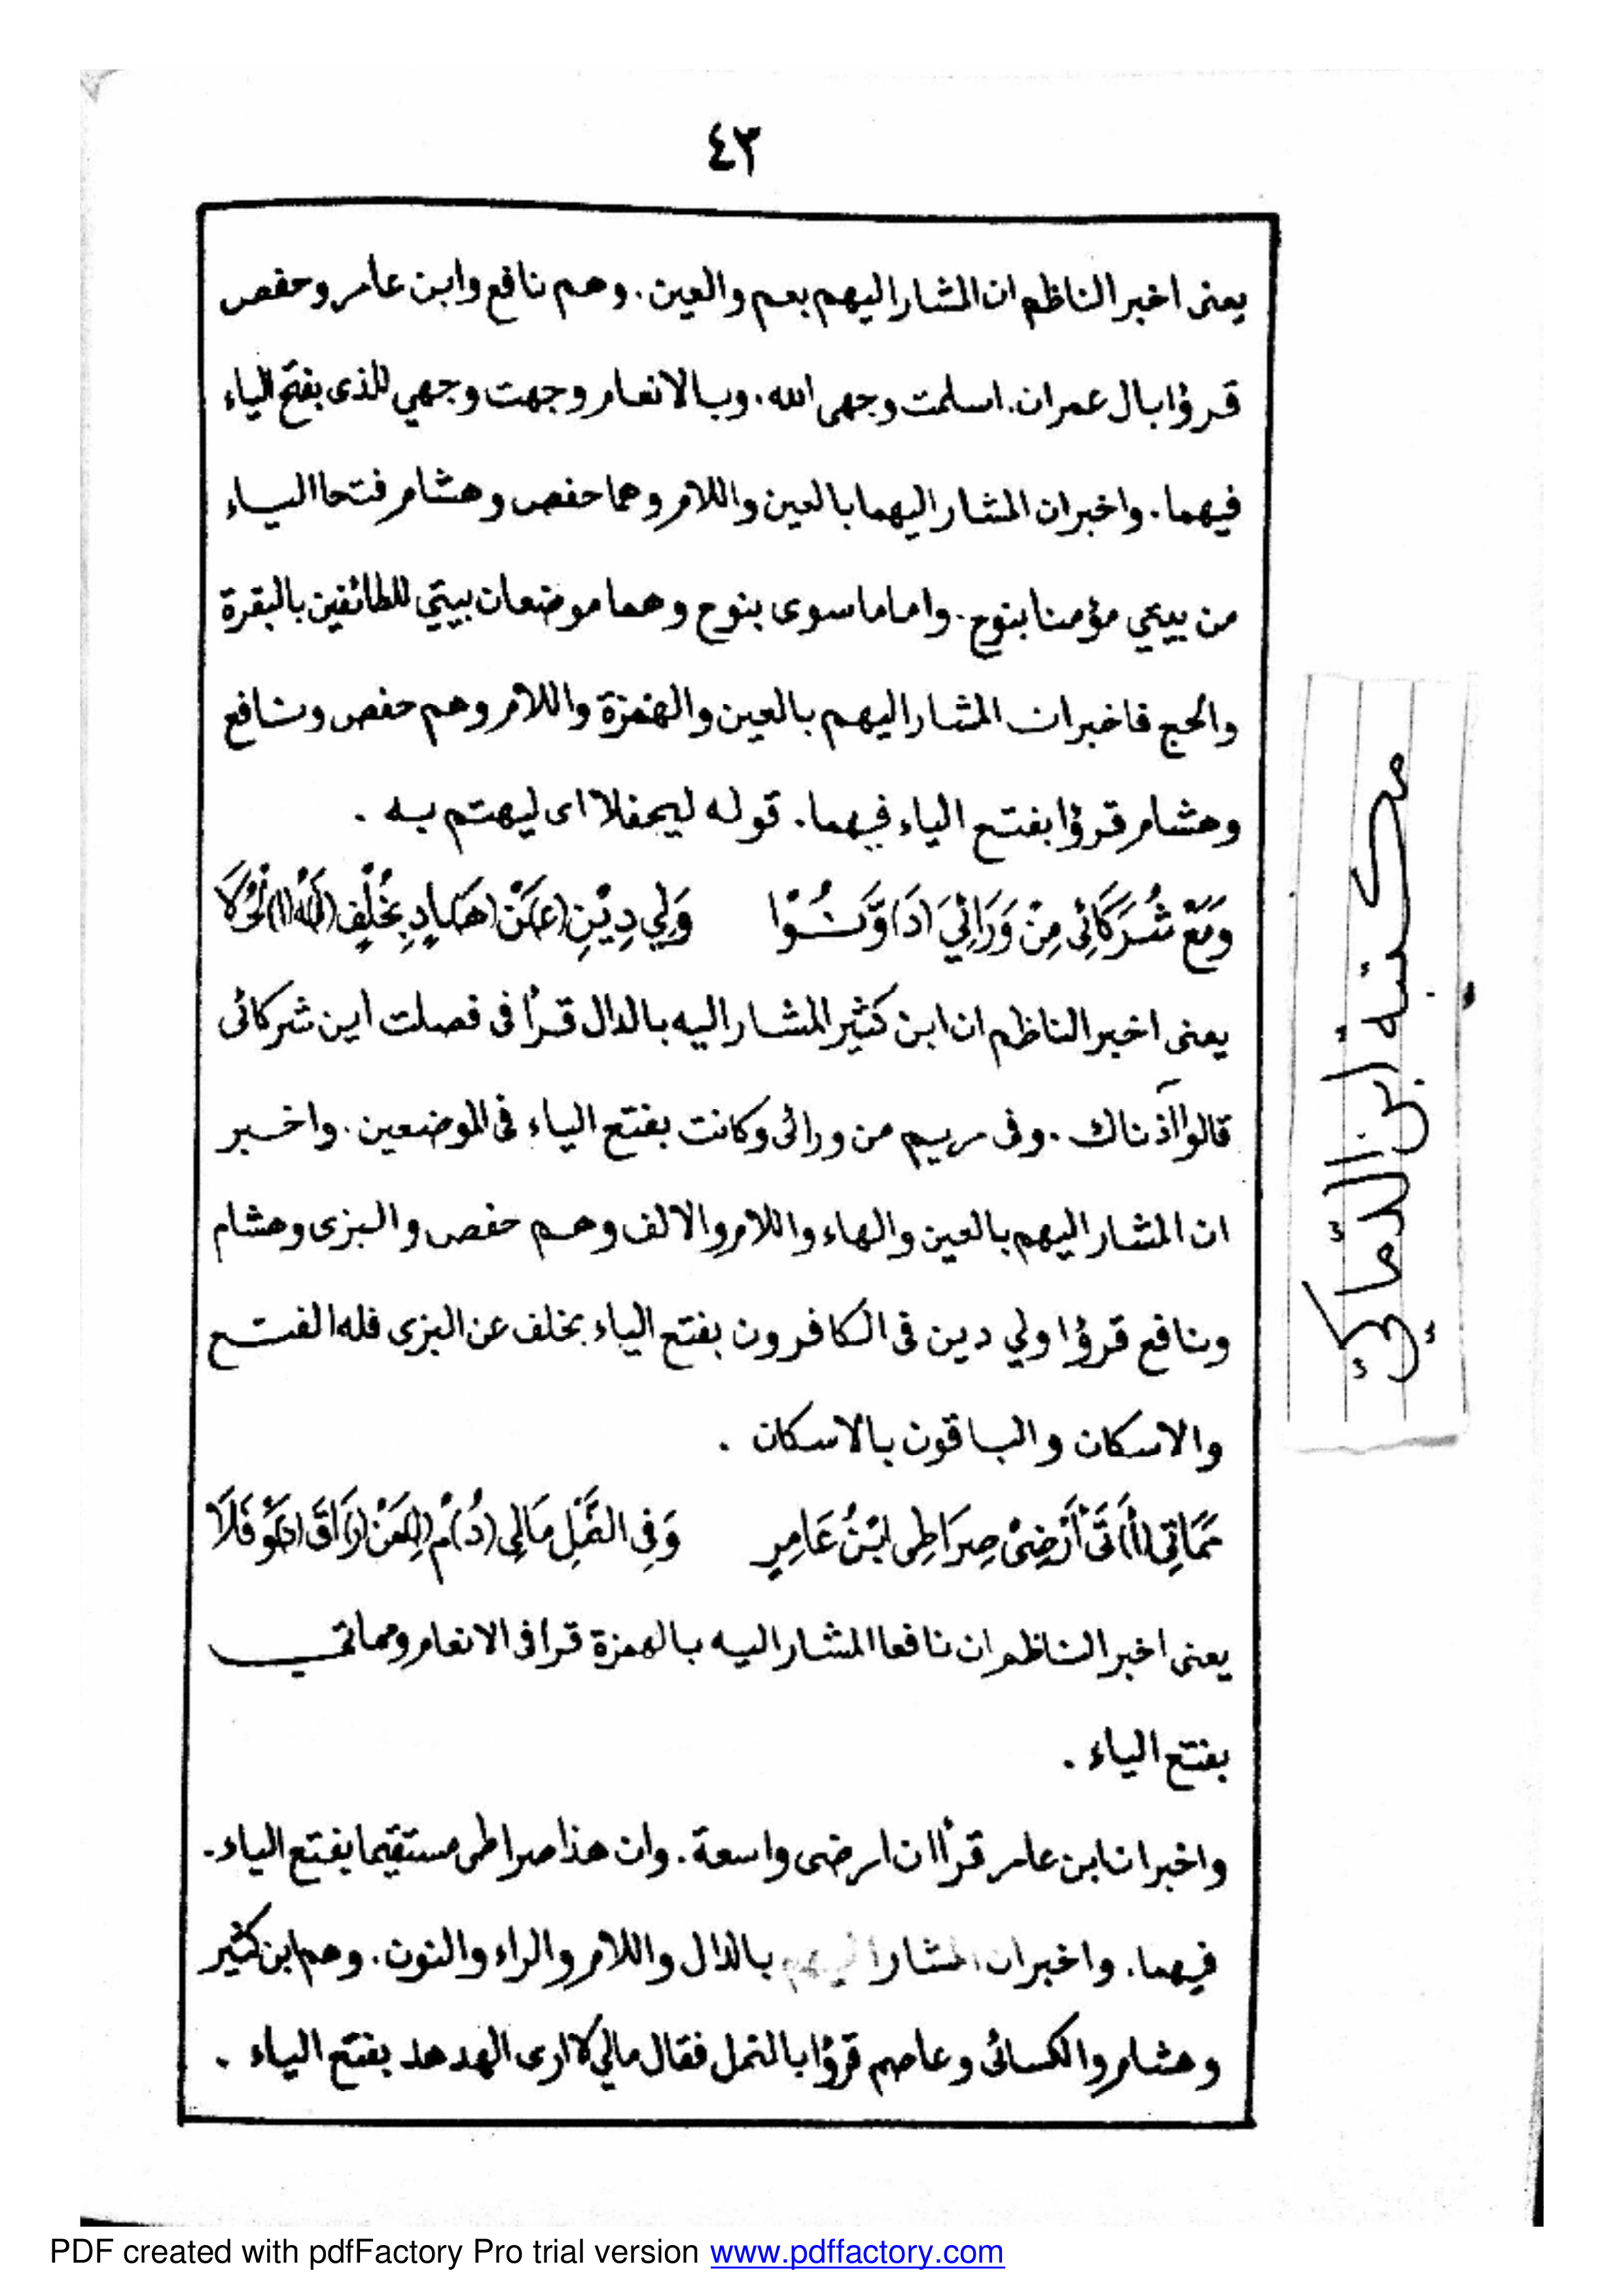 ٤٣
يعنى اخبر الناظم ان المشار اليهم بعم والعين . وهم نافع وابن عامر وحفص
قرؤا بال عمران . اسلمت وجهى الله . وبالانعام وجهت وجهي للذى بفتح الياء
فيهما . واخبر ان المشار اليهما بالعين واللام وهما حفص وهشام فتحا اليــاء
من بيتي مؤمنا بنوح . واما ما سوى بنوح وهما موضعان بيتي للطائفين بالبقرة
والحج فاخبر ان المشار اليهم بالعين والهمزة واللام وهم حفص ونافع
وهشام قرؤا بفتح الياء فيهما . قوله ليحفلا اى ليهتم به .
وَمَعْ شُرَكَائِى مِنْ وَرَائِيَ (دَ) وَّنُـوْا وَلِي دِيْنِ (عَـ)نْ (هَـ)ادٍ بِخُلْفٍ (لَـ)هُ (ا)لْحُلَا
يعنى اخبر الناظم ان ابن كثير المشار اليه بالدال قرأ فى فصلت اين شركائى
قالوا آذناك . وفى مريم من ورائى وكانت بفتح الياء فى الموضعين . واخبر
ان المشار اليهم بالعين والهاء واللام والالف وهم حفص والبزى وهشام
ونافع قرؤا ولي دين فى الكافرون بفتح الياء بخلف عن البزى فله الفتح
والاسكان والباقون بالاسكان .
مَمَاتِى (أَ) تَى أَرْضِىْ صِرَاطِى ابْنُ عَامِرٍ وَفِى النَّمْلِ مَالِى (دُ) مْ (لِـ)مَنْ (رَ)اقَ (نَـ)وْفَلَا
يعنى اخبر الناظم ان نافعا المشار اليه بالهمزة قرا فى الانعام ومماتى
بفتح الياء .
واخبر ان ابن عامر قرأ ان ارضى واسعة . وان هذا صراطى مستقيما بفتح الياء .
فيهما . واخبر ان المشار اليهم بالدال واللام والراء والنون . وهم ابن كثير
وهشام والكسائى وعاصم قرؤا بالنمل فقال مالي لا ارى الهدهد بفتح الياء .
مكتبة ابن الدماكي
PDF created with pdfFactory Pro trial version www.pdffactory.com